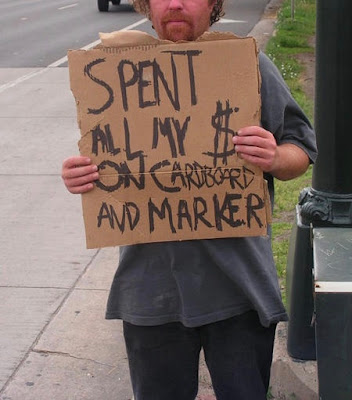 SPENT
ALL MY $
ON CARDBOARD
AND MARKER